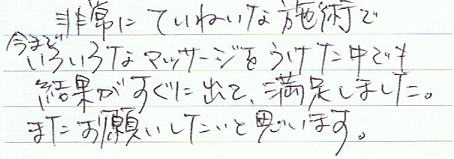 非常にていねいな施術で
今までいろいろなマッサージをうけた中でも
結果がすぐに出て、満足しました。
またお願いしたいと思います。